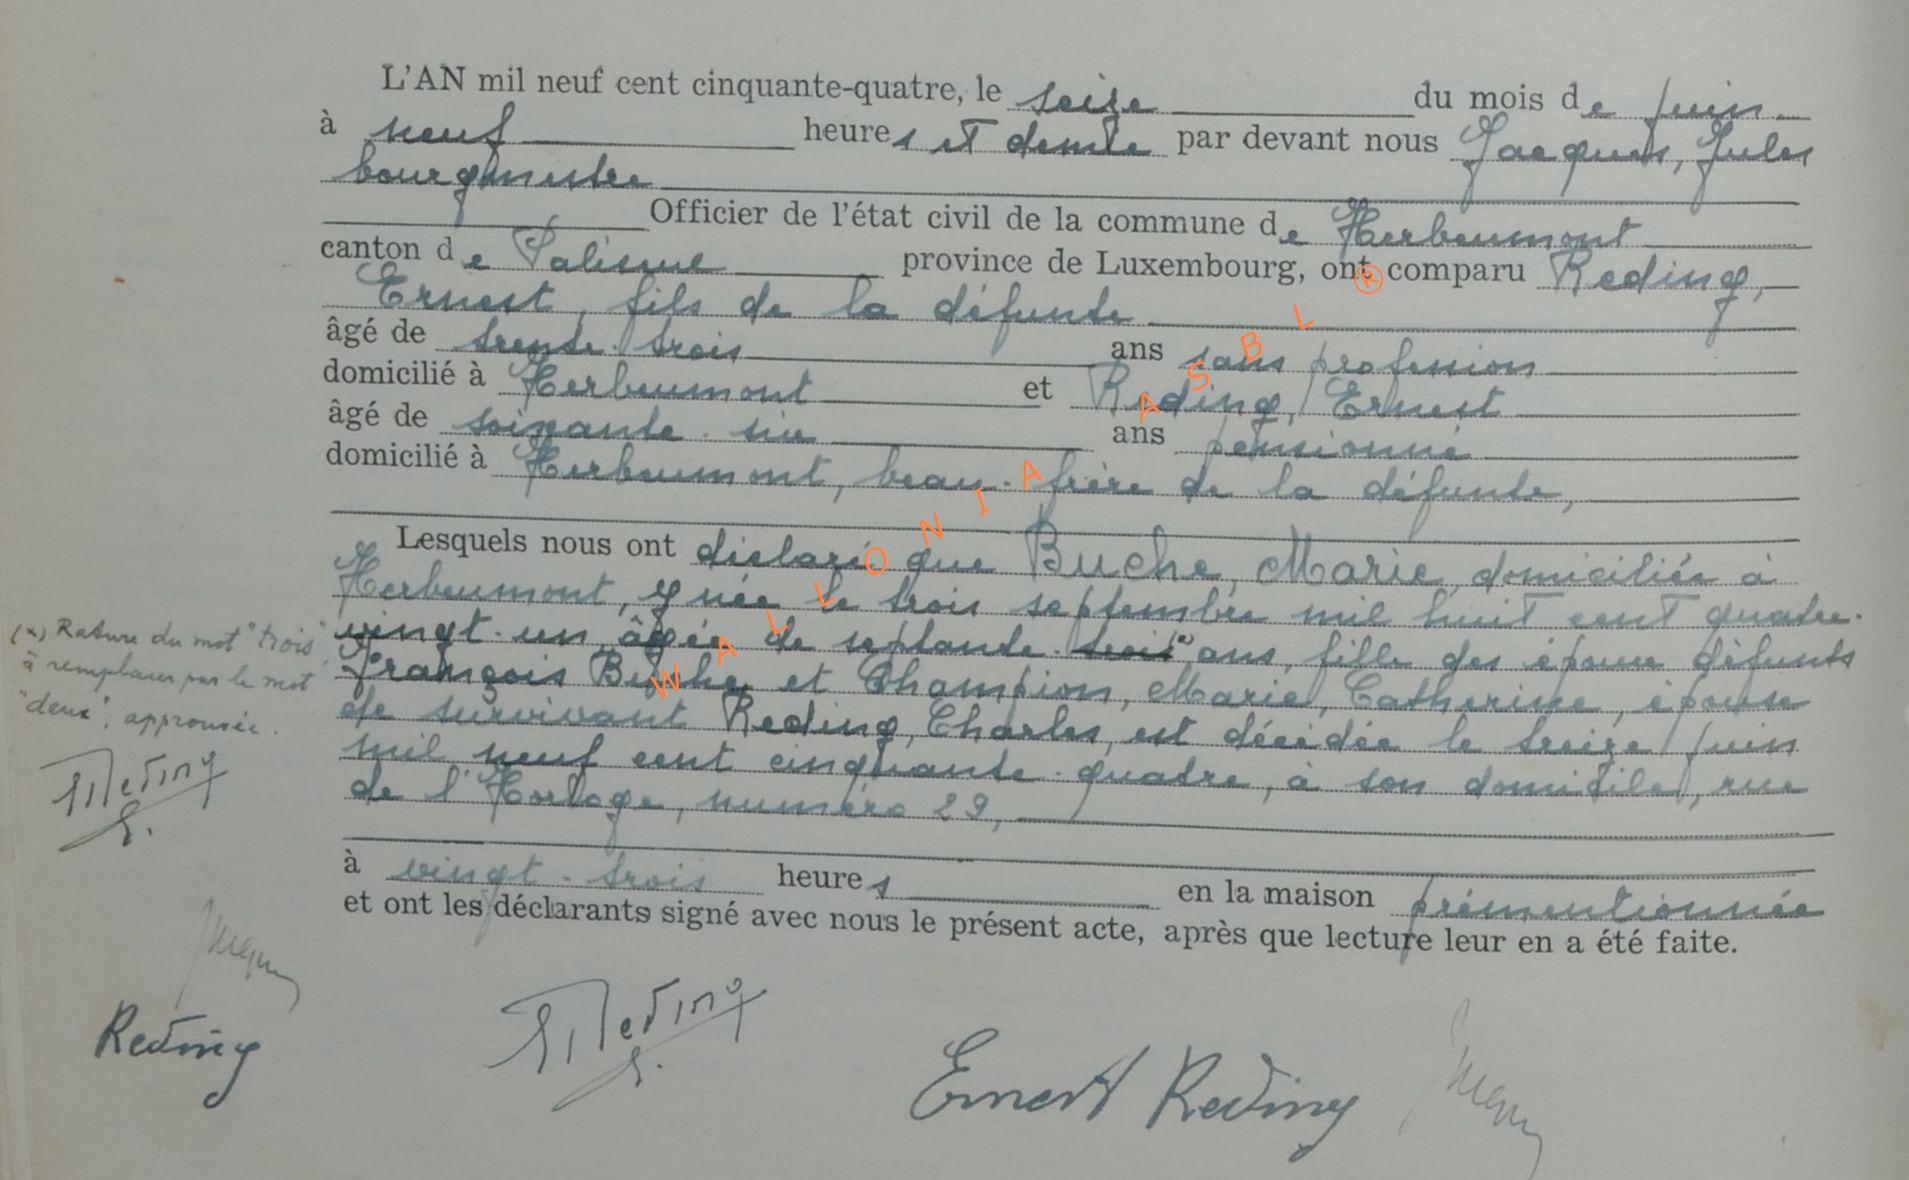 L'AN mil neuf cent cinquante-quatre, le seize du mois de juin
à neuf heures et demie par devant nous Jacques, Jules
bourgmestre
Officier de l'état civil de la commune de Herbeumont
canton de Paliseul province de Luxembourg, ont comparu Reding,
Ernest, fils de la défunte
âgé de trente-trois ans sans profession
domicilié à Herbeumont et Reding, Ernest
âgé de soixante-six ans pensionné
domicilié à Herbeumont, beau-frère de la défunte,
Lesquels nous ont déclaré que Buche, Marie, domiciliée à
Herbeumont, y née le trois septembre mil huit cent quatre-
vingt-un âgée de septante-trois ans, fille des époux défunts
François Buche et Champion, Marie, Catherine, épouse
de survivant Reding, Charles, est décédée le treize juin
mil neuf cent cinquante-quatre, à son domicile, rue
de l'Horloge, numéro 29,
à vingt-trois heures en la maison prémentionnée
et ont les déclarants signé avec nous le présent acte, après que lecture leur en a été faite.
(x) Rature du mot "trois"
à remplacer par le mot
"deux", approuvée.
Reding
Reding
Reding
Ernest Reding
WALLONIA ASBL ®